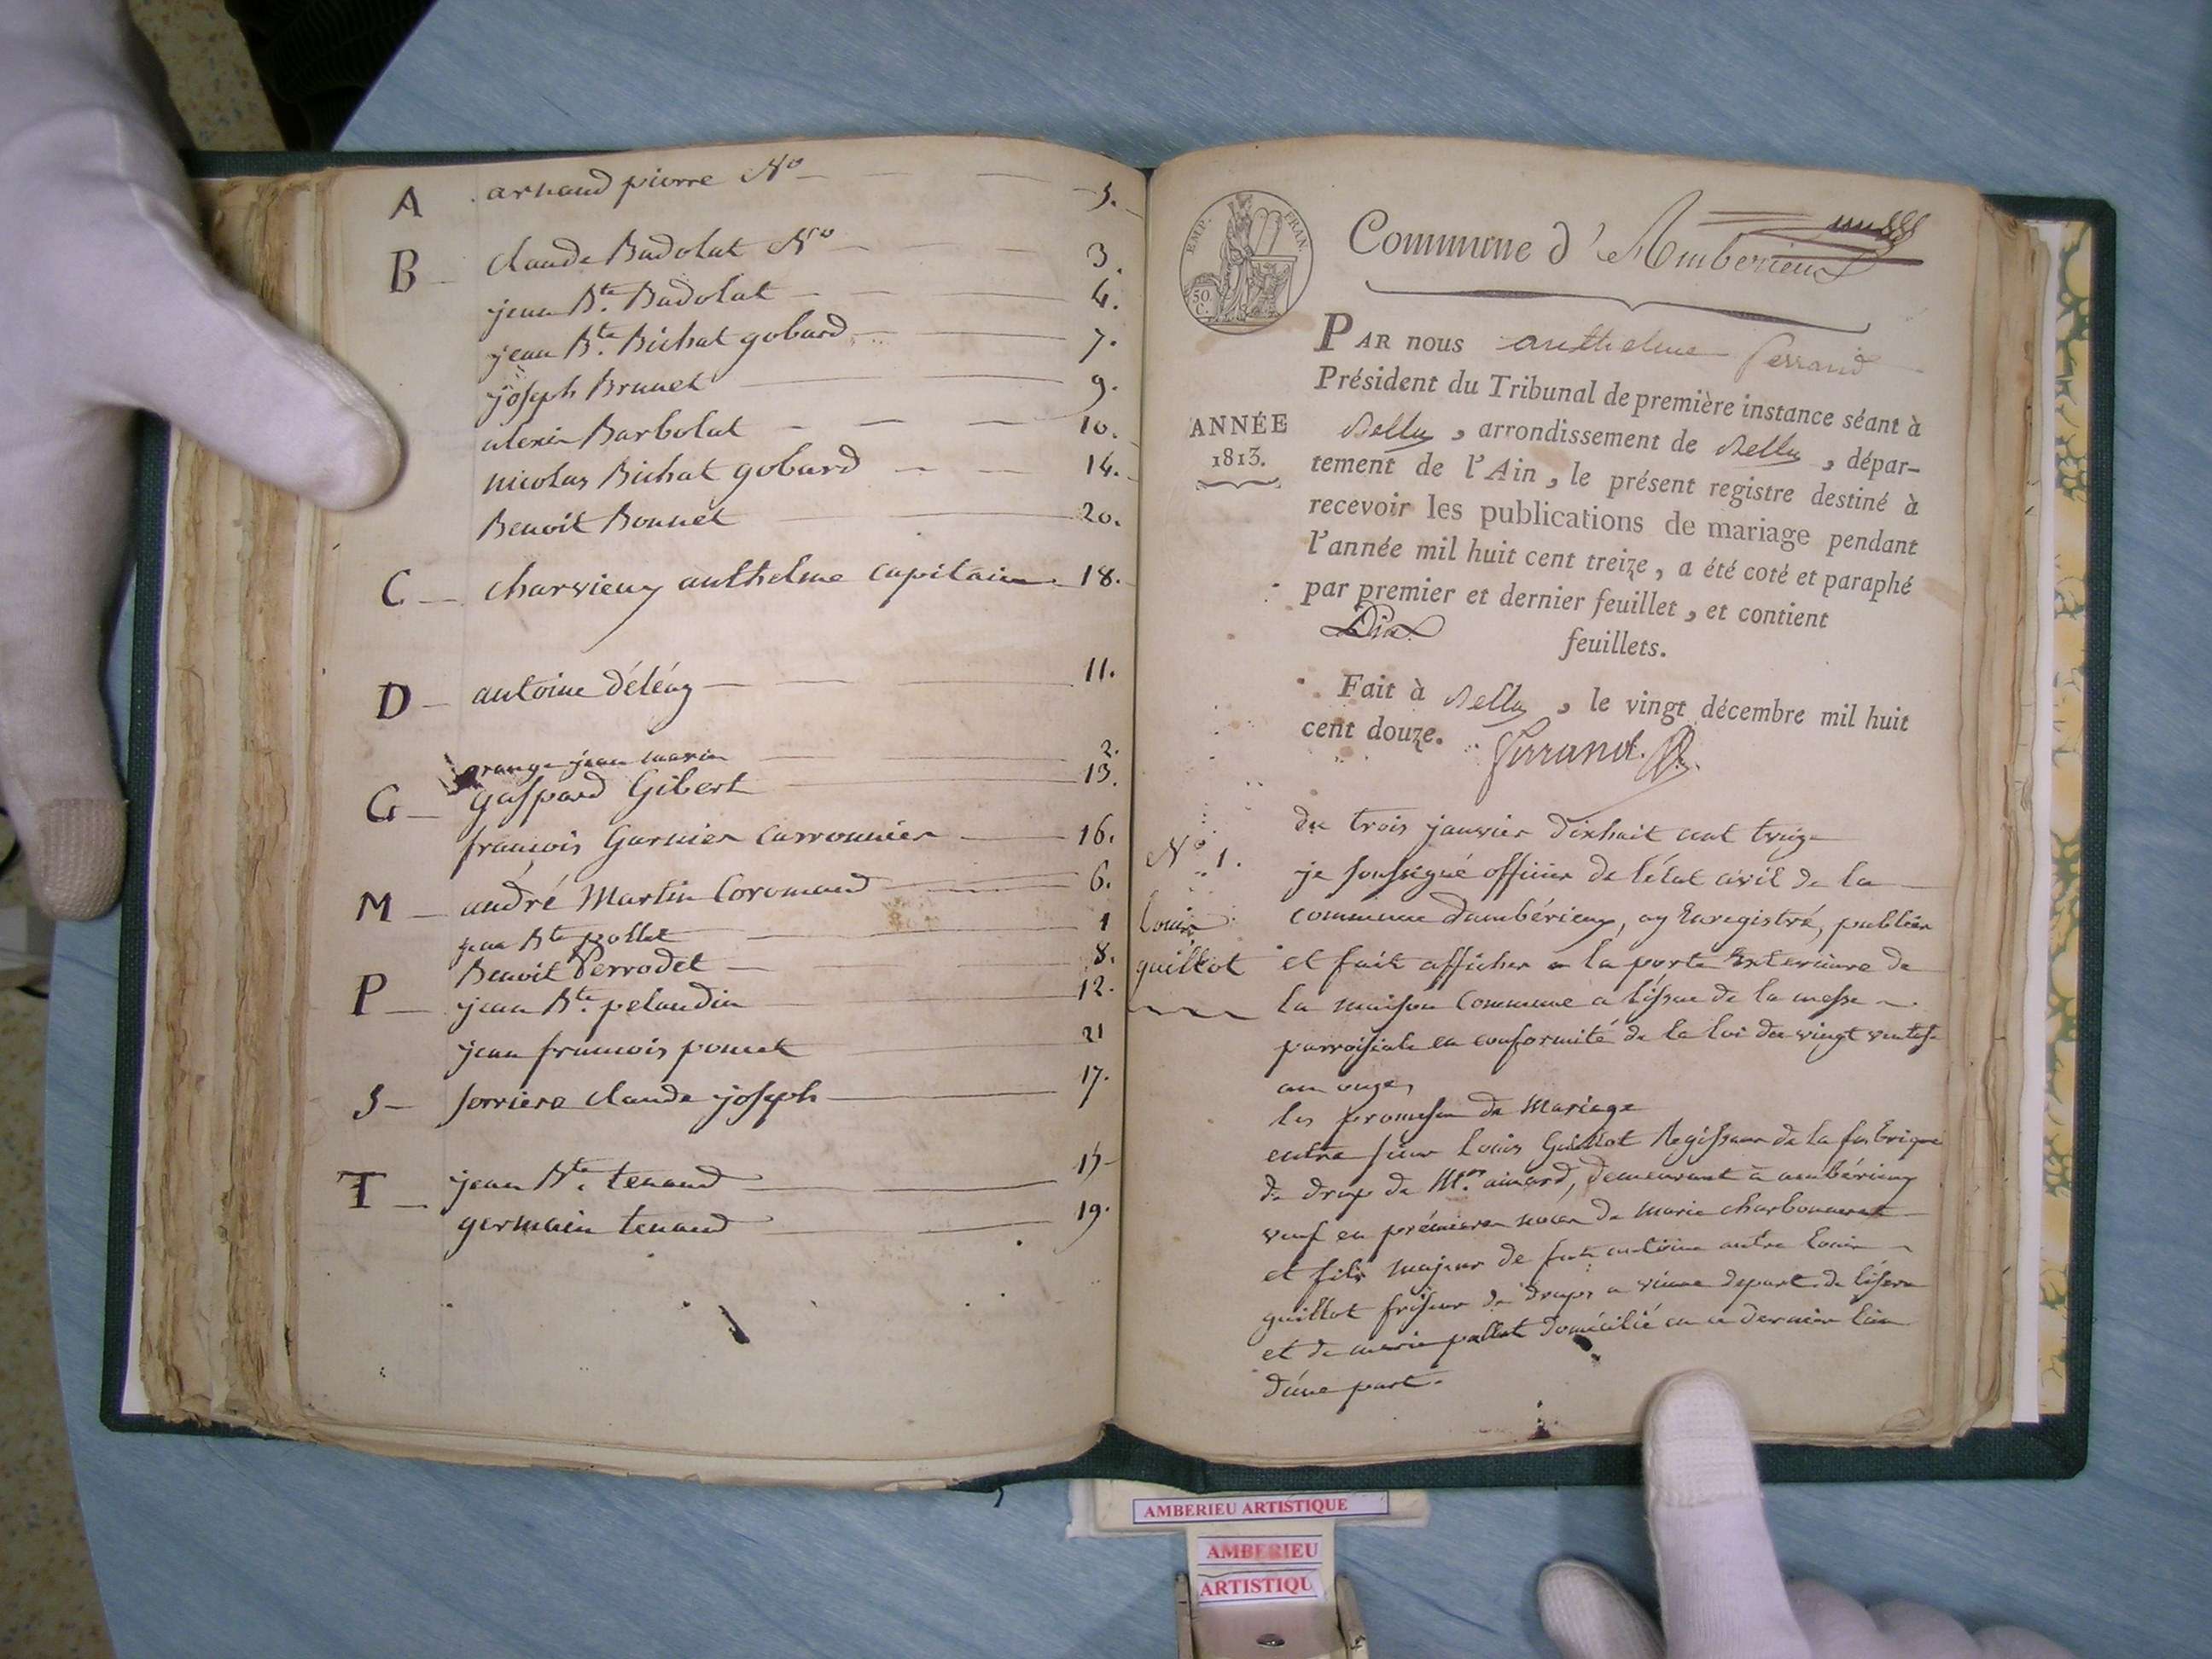 A arnaud pierre N° 5.
B claude Badolat N° 3.
jean Bte. Badolat 4.
jean Bte. Bichat gobard 7.
joseph Brunet 9.
alexis Barbolat 10.
nicolas Bichat gobard 14.
Benoit Bonnet 20.
C charvieux anthelme capitaine 18.
D antoine déléaz 11.
grange jean marie 2.
G gaspard Gibert 13.
françois Garnier carronnier 16.
M andré Martin Coromand 6.
jean Bte pollet 1
Benoit Perrodet 8.
P jean Bte. pelaudin 12.
jean francois poncet 21
S serriere claude joseph 17.
T jean Bte. tenand 15
germain tenand 19.
EMP. FRAN.
50 C.
Commune d'Amberieux
PAR nous anthelme Ferrand
Président du Tribunal de première instance séant à
Belley, arrondissement de Belley, dépar-
ANNÉE
1813.
tement de l'Ain, le présent registre destiné à
recevoir les publications de mariage pendant
l'année mil huit cent treize, a été coté et paraphé
par premier et dernier feuillet, et contient
Dix feuillets.
Fait à Belley, le vingt décembre mil huit
cent douze. Ferrand.
du trois janvier dixhuit cent treize
N° 1.
je soussigné officier de l'état civil de la
Louis
commune d'ambérieux, ay Enregistré, publier
guillot
et fait afficher a la porte Exterieure de
la maison Commune a l'issue de la messe
parroissiale en conformité de la loi du vingt ventose
an onze,
les promesses de Mariage
entre sieur Louis Guillot Regisseur de la fabrique
de drap de Mr. aimard, demeurant à ambérieux
veuf en prémieres noces de marie charbonneret
et fils majeur de feu antoine autre Louis
guillot friseur de draps a vienne depart. de lisere
et de marie pallet domicilié en ce dernier lieu
d'une part.
AMBERIEU ARTISTIQUE
AMBERIEU
ARTISTIQU